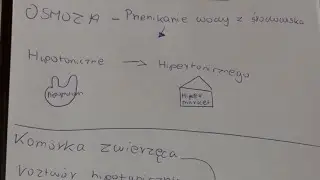 OSMOZA – Przenikanie wody z środowiska
Hipotoniczne → Hipertonicznego
Hiper
market
Komórka zwierzęca
roztwór